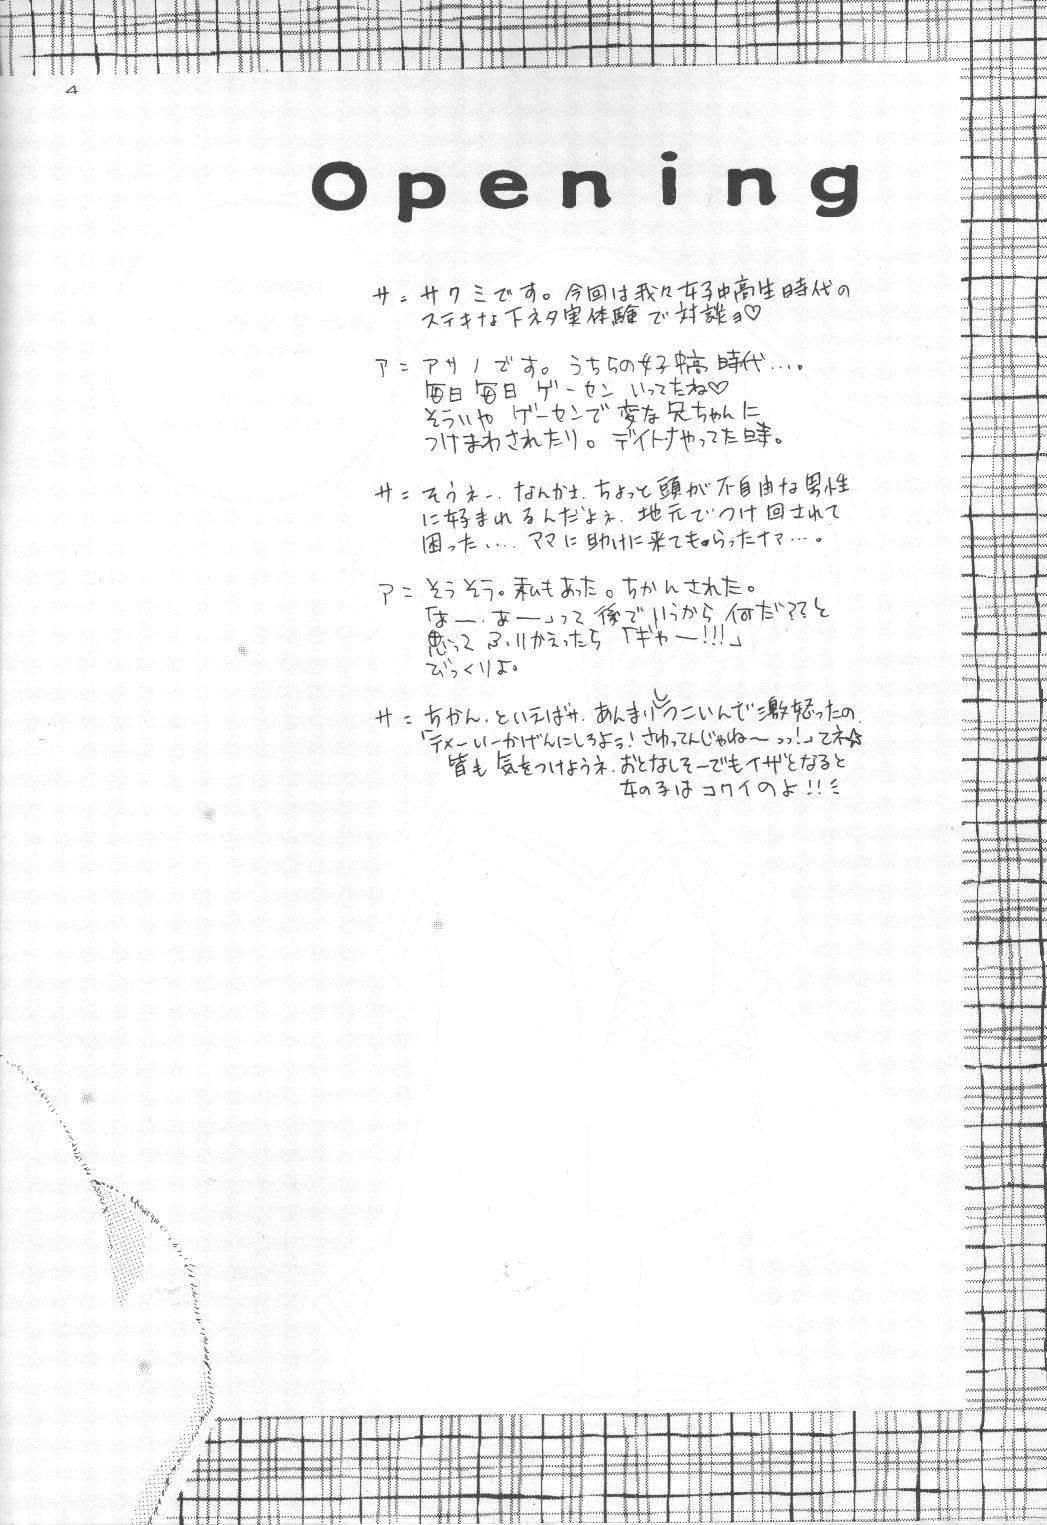 4
Opening
サ= サクミです。今回は我々女子中高生時代の
ステキな下ネタ実体験で対談ョ♡
ア= アサノです。うちらの女子中高時代…。
毎日毎日ゲーセンいってたね♡
そういやゲーセンで変な兄ちゃんに
つけまわされたり。デイトナやってた時。
サ= そうネー、なんかさ、ちょっと頭が不自由な男性
に好まれるんだよネ、地元でつけ回されて
困った…、ママに助けに来てもらったナァ…。
ア= そうそう。私もあった。ちかんされた。
「はー、あー」って後でいうから何だ??と
思ってふりかえったら「ギャー!!!」
びっくりよ。
サ= ちかん、といえばサ、あんまりしつこいんで激怒ったの、
「テメーいーかげんにしろよっ!さわってんじゃねーっっ!」てネ☆
皆も気をつけようネ、おとなしそーでもイザとなると
女の子はコワイのよ!!